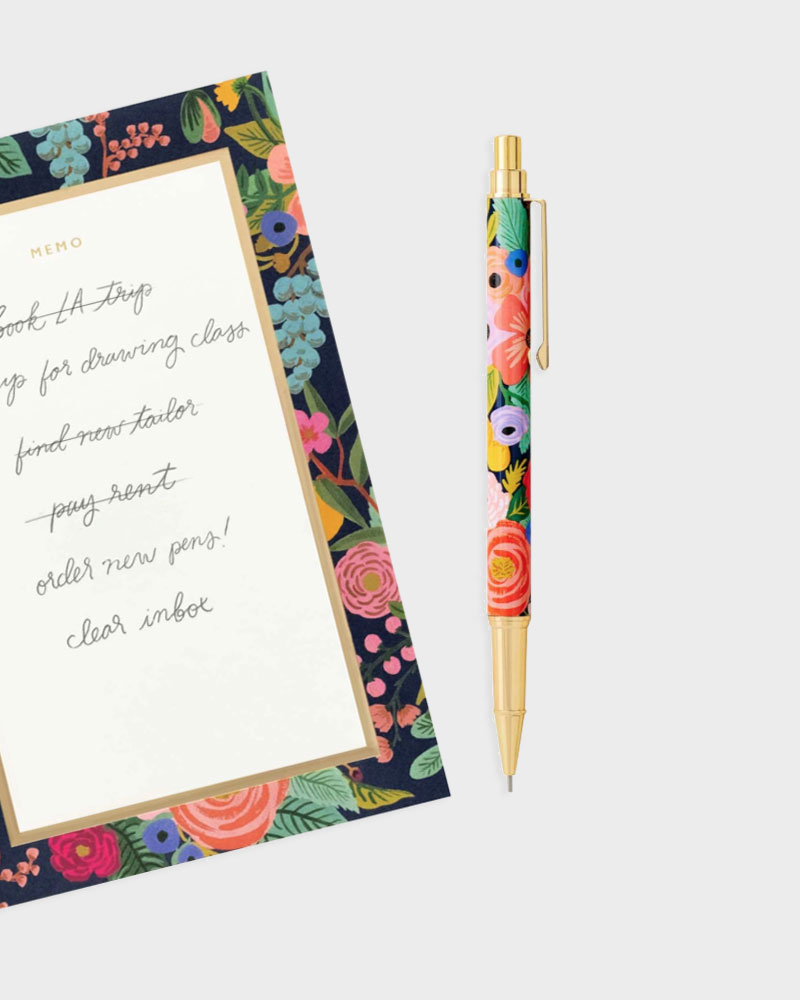 MEMO
book LA trip
up for drawing class
find new tailor
pay rent
order new pens!
clear inbox